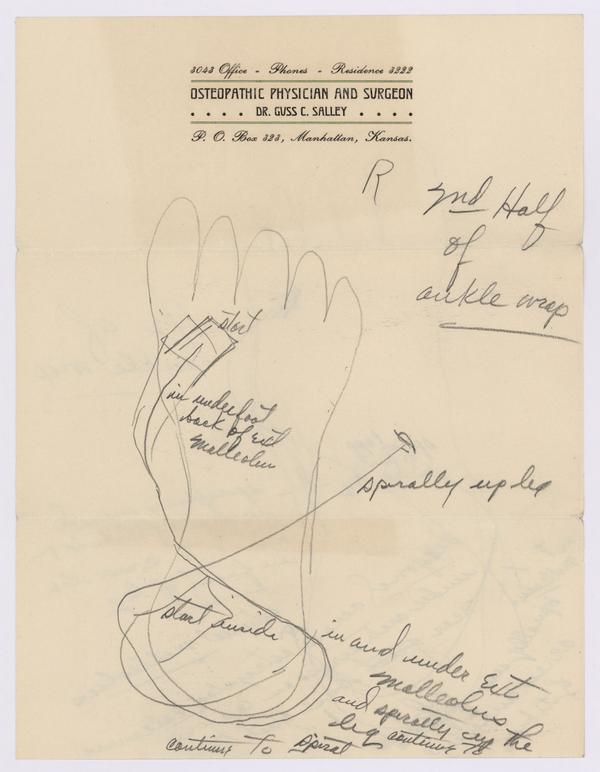 3043 Office - Phones - Residence 3222
OSTEOPATHIC PHYSICIAN AND SURGEON
. . . . DR. GUSS C. SALLEY . . . .
P. O. Box 323, Manhattan, Kansas.
R
2nd Half
of
ankle wrap
start
in underfoot
back of ext
malleolus
spirally up leg
start inside
in and under Ext
malleolus
and spirally up the
leg continue to
continue to spiral